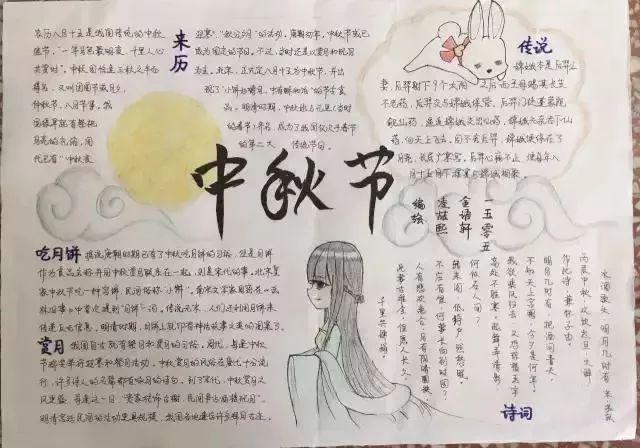 来历
农历八月十五是我国传统的中秋
佳节。"一年月色最明夜,千里人心
共赏时"。中秋因恰值三秋之半而
得名,又叫团圆节或月夕、
仲秋节、八月节等。我
国很早就有祭祀
月亮的礼俗,周
代已有"中秋夜
迎寒""秋分夕月"的活动。唐朝初年,中秋节成
为固定的节日。不过,当时还是以赏月和祝月
为主。北宋,正式定八月十五为中秋节,并出
现了"小饼如嚼月,中有酥和饴"的节令食
品。明清时期,中秋还与元旦(当时
的春节)齐名,成为了我国仅次于春节
的第二大传统节日。
传说
嫦娥本是后羿之
妻,后羿射下9个太阳
不老药,后羿交与嫦娥保管。后羿门徒逄蒙觊
觎仙药,逼迫嫦娥交出仙药,嫦娥无奈吞下仙
药,向天上飞去。
月亮,长居广寒宫。后羿心痛不止,
八月十五
中秋节
一五零五
金语轩
凌喆熙
编绘
吃月饼
据说唐朝时期已有了中秋吃月饼的习俗,但是月饼
作为食品名称并同中秋赏月联系在一起,则是宋代的事。北宋皇
家中秋节吃一种宫饼,民间俗称"小饼"。南宋文学家周密在《武
林旧事》中首次提到"月饼"一词。传说元末,人们还利用月饼来
传递反元信息。明清时期,月饼上就印有神话故事之类的图案了。
赏月
我国自古就有祭月和赏月的习俗。周代,每逢中秋
节都要举行迎寒和祭月活动。中秋赏月的风俗在唐代十分流
行,许多诗人的名篇都有咏月的诗句。到了宋代,中秋赏月之
风更盛。每逢这一日,"贵家结饰台榭,民间争占酒楼玩月"。
明清宫廷、民间的活动更具规模,我国各地遗存许多拜月古迹。
诗词
水调歌头 明月几时有 宋 苏轼
丙辰中秋,欢饮达旦,大醉,
作此诗,兼怀子由。
明月几时有,把酒问青天。
不知天上宫阙,今夕是何年?
我欲乘风归去,又恐琼楼玉宇
高处不胜寒。起舞弄清影,
何似在人间?
转朱阁,低绮户,照无眠。
不应有恨,何事长向别时圆?
人有悲欢离合,月有阴晴圆缺,
此事古难全。但愿人长久,
千里共婵娟。